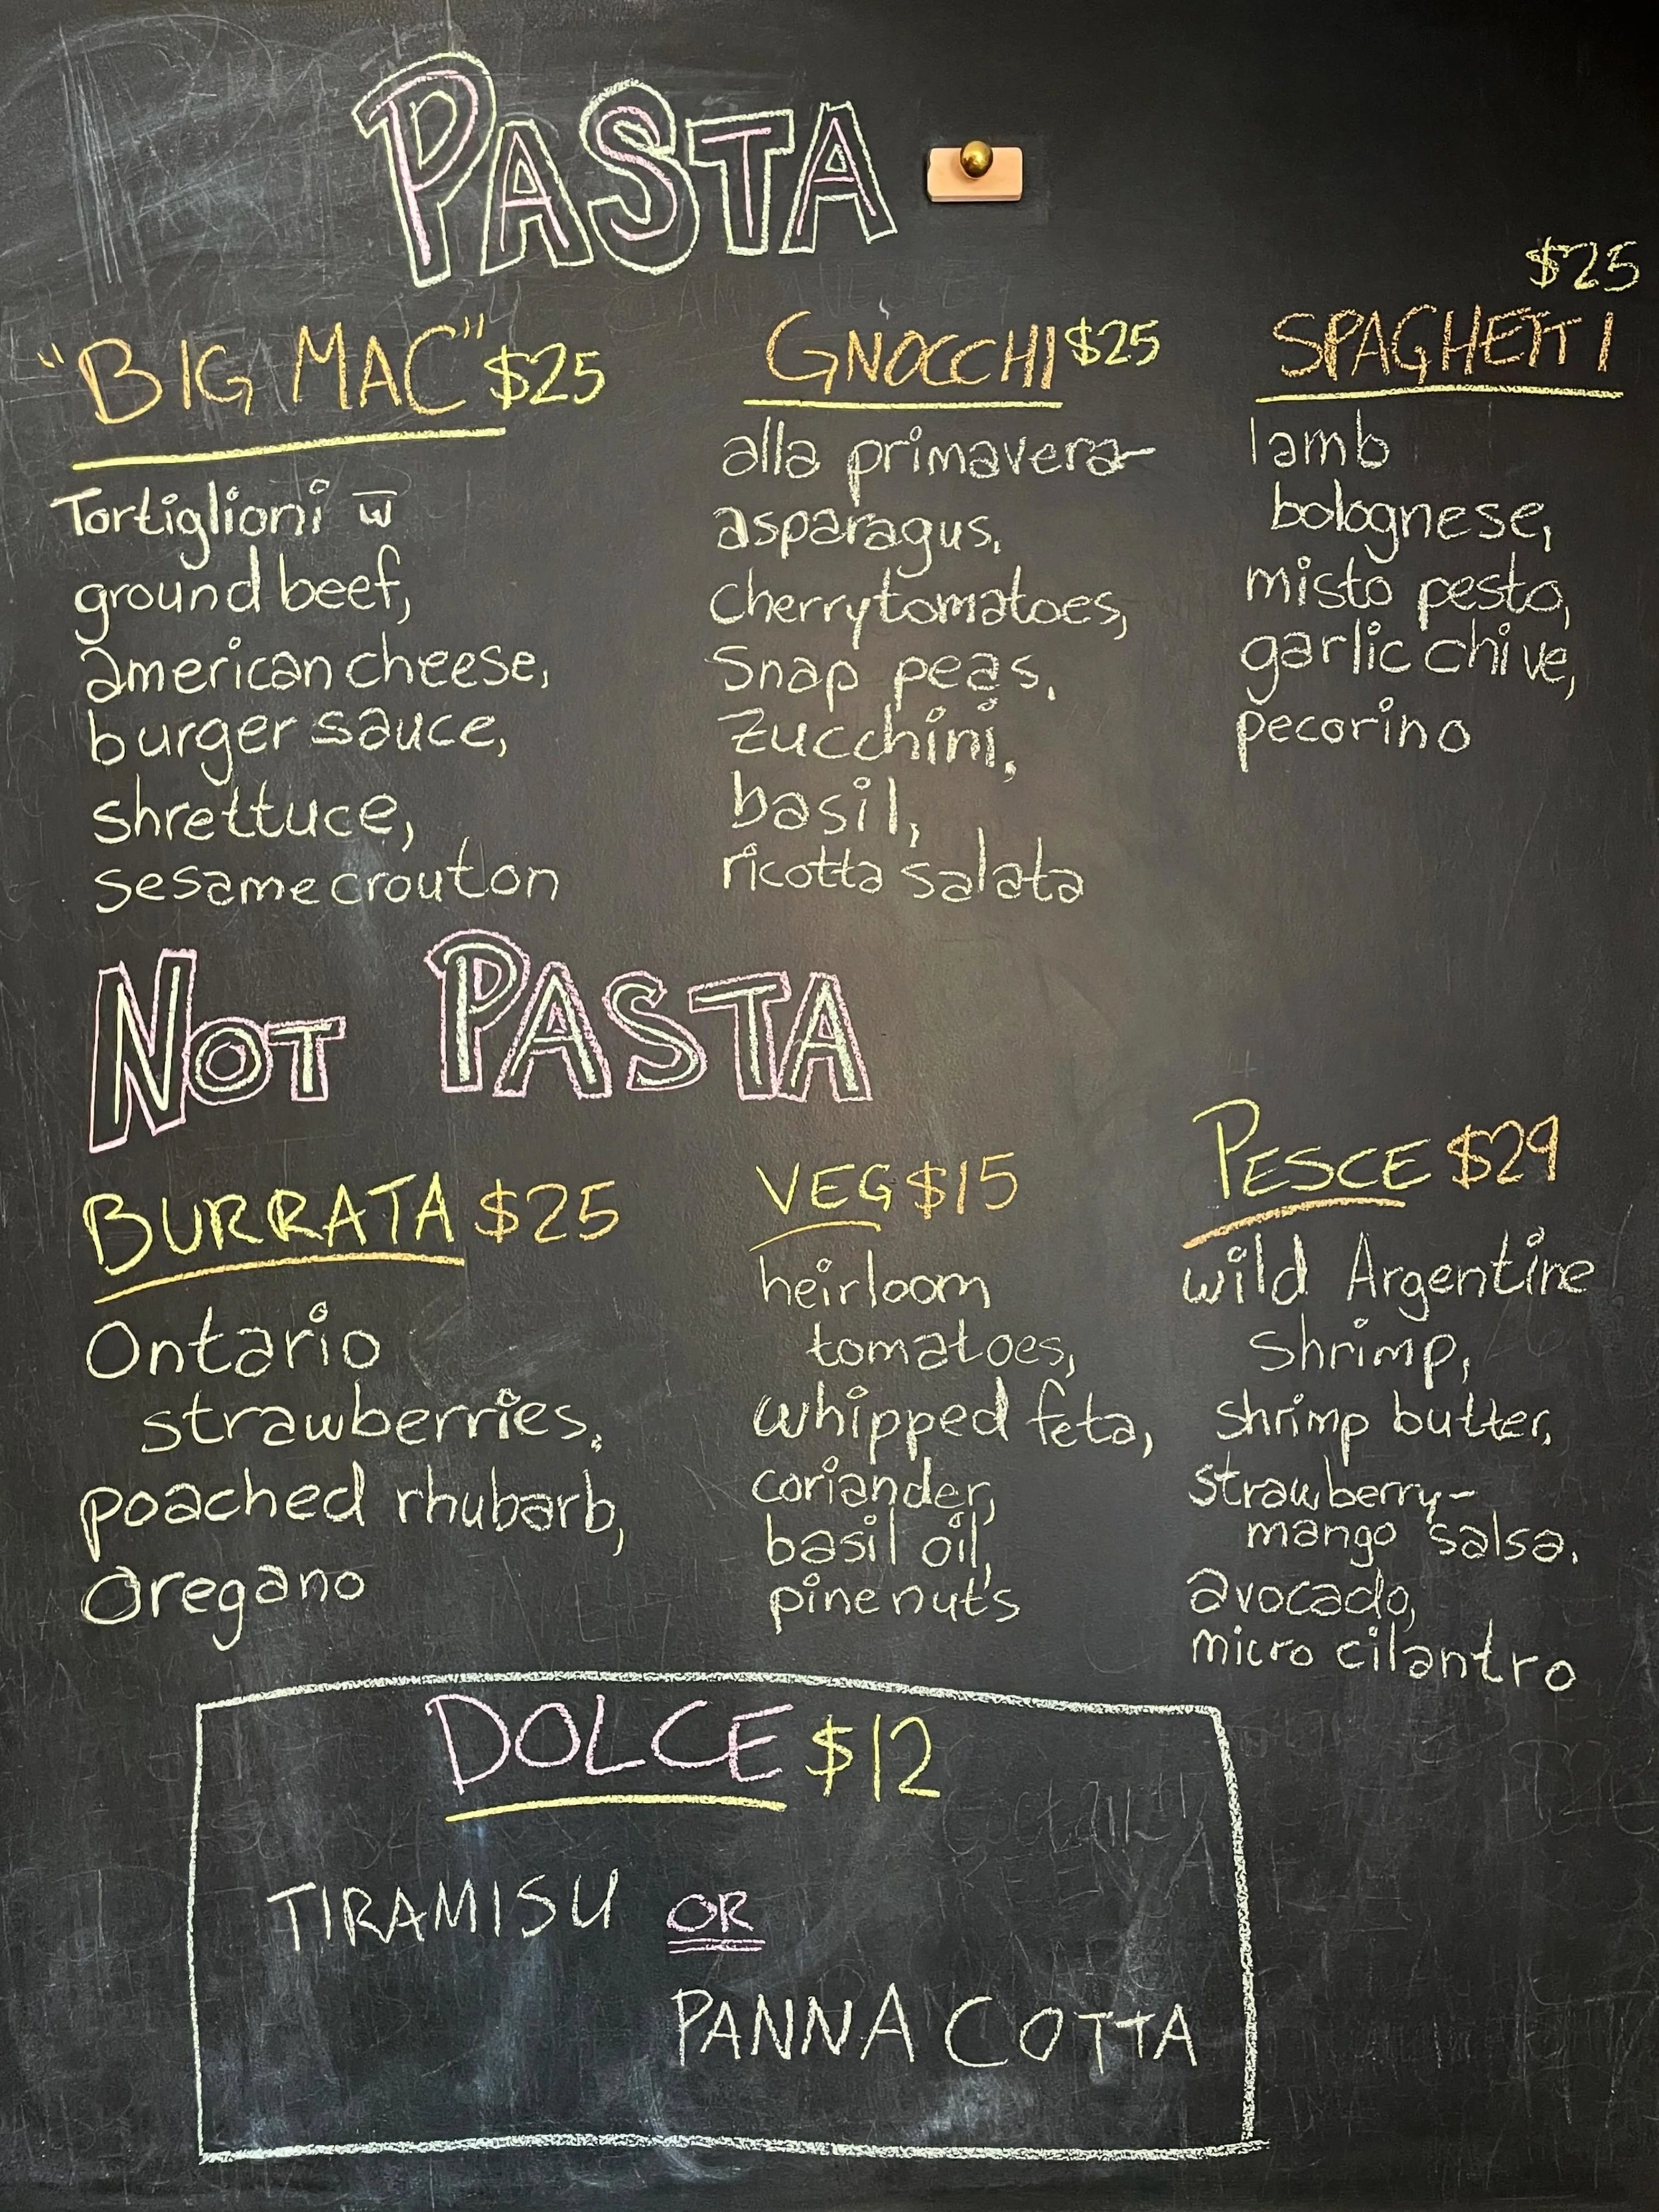 PASTA
"BIG MAC" $25
Tortiglioni w̅
ground beef,
american cheese,
burger sauce,
shrettuce,
sesame crouton
GNOCCHI $25
alla primavera-
asparagus,
cherry tomatoes,
Snap peas,
Zucchini,
basil,
ricotta salata
$25
SPAGHETTI
lamb
bolognese,
misto pesto,
garlic chive,
pecorino
NOT PASTA
BURRATA $25
Ontario
strawberries,
poached rhubarb,
Oregano
VEG $15
heirloom
tomatoes,
whipped feta,
coriander,
basil oil,
pine nuts
PESCE $29
wild Argentine
Shrimp,
shrimp butter,
strawberry-
mango salsa,
avocado,
micro cilantro
DOLCE $12
TIRAMISU OR
PANNA COTTA